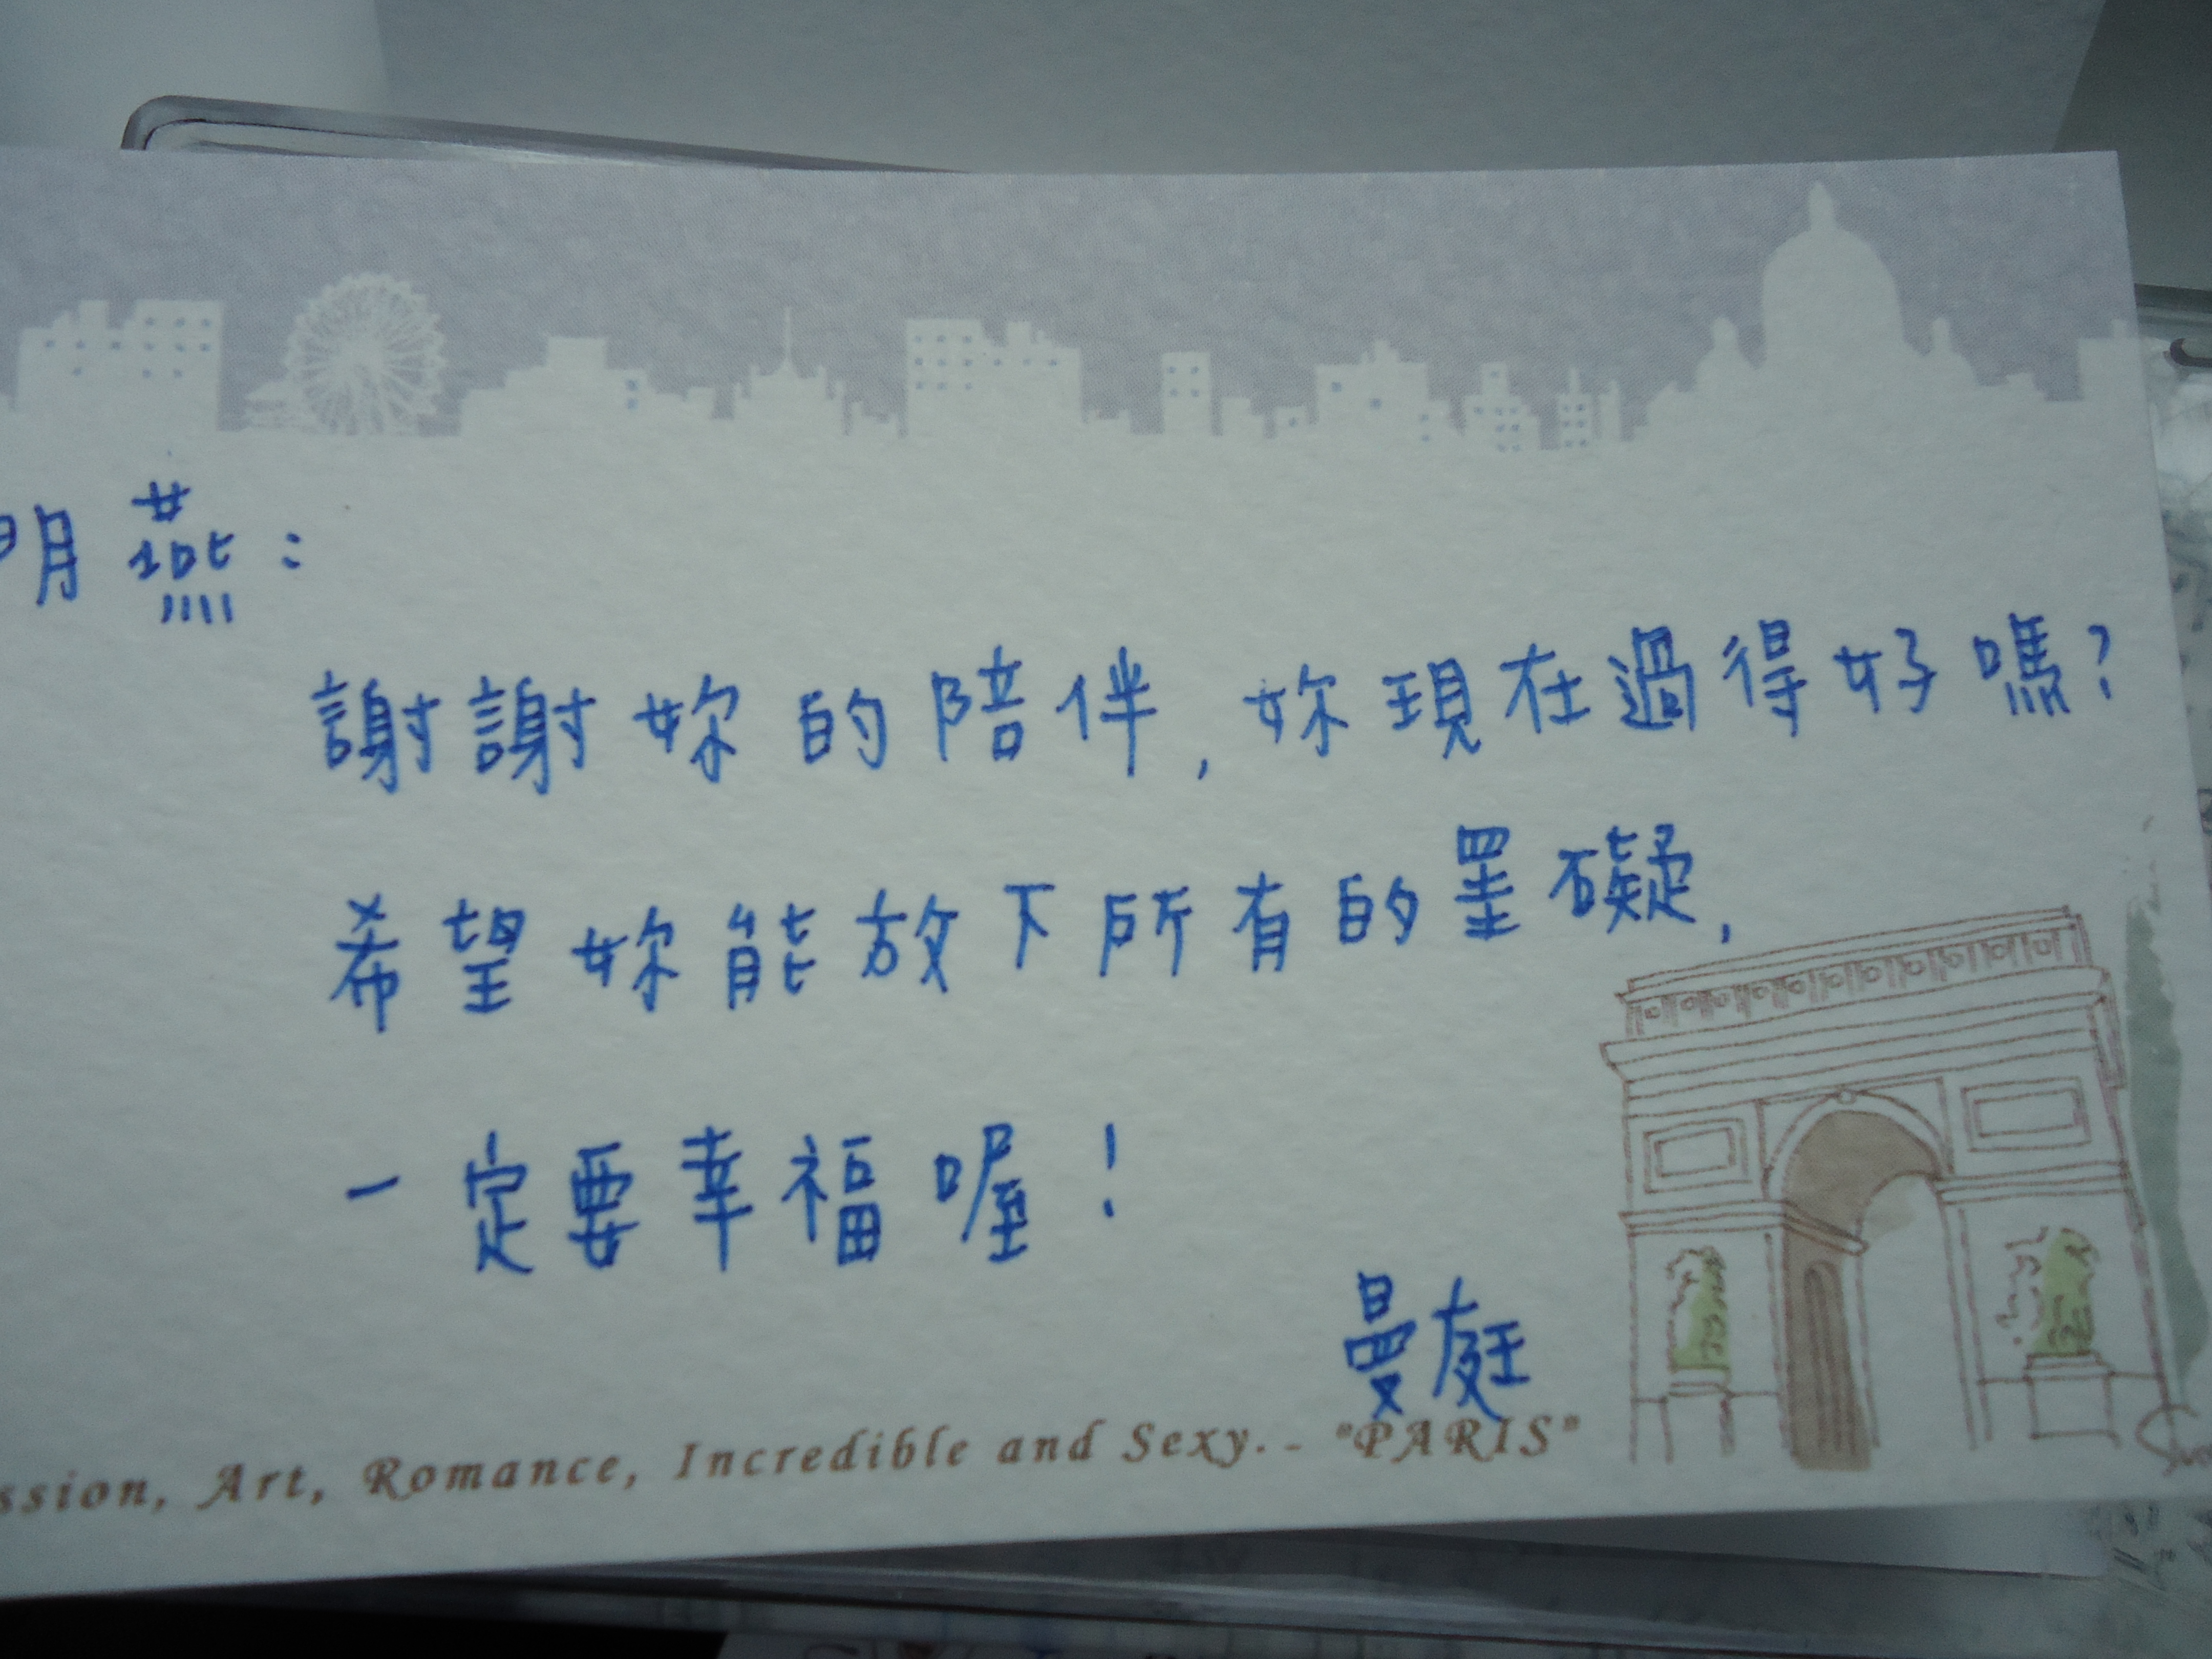 明燕：
謝謝妳的陪伴,妳現在過得好嗎?
希望妳能放下所有的罣礙,
一定要幸福喔!
曼庭
ssion, Art, Romance, Incredible and Sexy.. "PARIS"